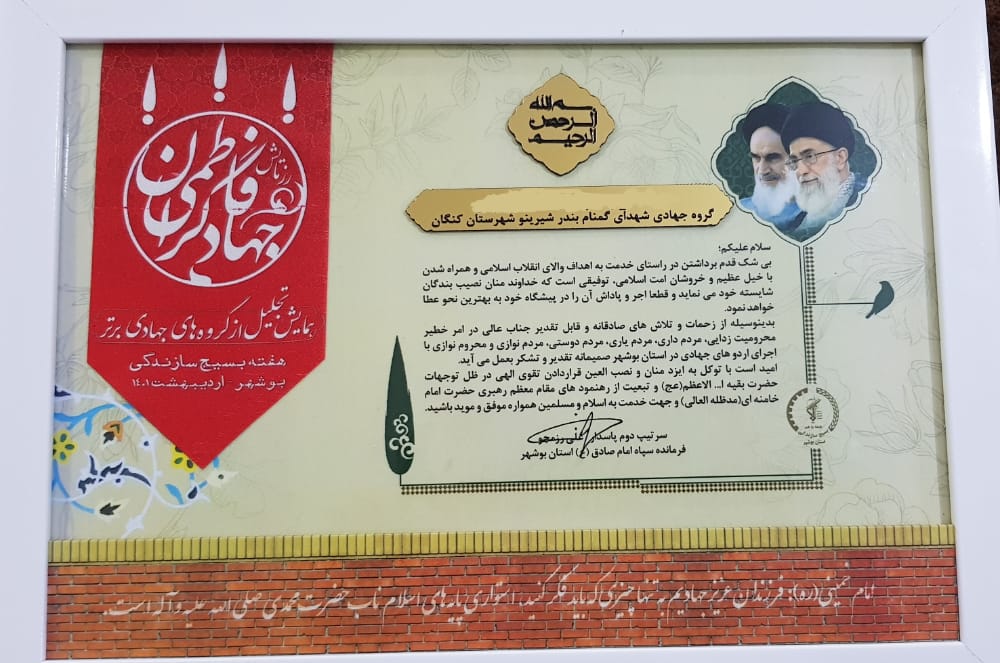 بسم الله
الرحمن
الرحیم
گروه جهادی شهدای گمنام بندر شیرینو شهرستان کنگان
سلام علیکم؛
بی شک قدم برداشتن در راستای خدمت به اهداف والای انقلاب اسلامی و همراه شدن
با خیل عظیم و خروشان امت اسلامی، توفیقی است که خداوند منان نصیب بندگان
شایسته خود می نماید و قطعا اجر و پاداش آن را در پیشگاه خود به بهترین نحو عطا
خواهد نمود.
بدینوسیله از زحمات و تلاش های صادقانه و قابل تقدیر جناب عالی در امر خطیر
محرومیت زدایی، مردم داری، مردم یاری، مردم دوستی، مردم نوازی و محروم نوازی با
اجرای اردو های جهادی در استان بوشهر صمیمانه تقدیر و تشکر بعمل می آید.
امید است با توکل به ایزد منان و نصب العین قراردادن تقوی الهی در ظل توجهات
حضرت بقیه ا... الاعظم(عج) و تبعیت از رهنمود های مقام معظم رهبری حضرت امام
خامنه ای(مدظله العالی) و جهت خدمت به اسلام و مسلمین همواره موفق و موید باشید.
سرتیپ دوم پاسدار
فرمانده سپاه امام صادق (ع) استان بوشهر
جهادگران فاطمی
همایش تجلیل از گروه های جهادی برتر
هفته بسیج سازندگی
بوشهر - اردیبهشت ۱۴۰۱
امام خمینی(ره): فرزندان عزیز جهادیم به تنها چیزی که باید فکر کنید، استواری پایه های اسلام ناب حضرت محمدی صلی الله علیه و آله است.